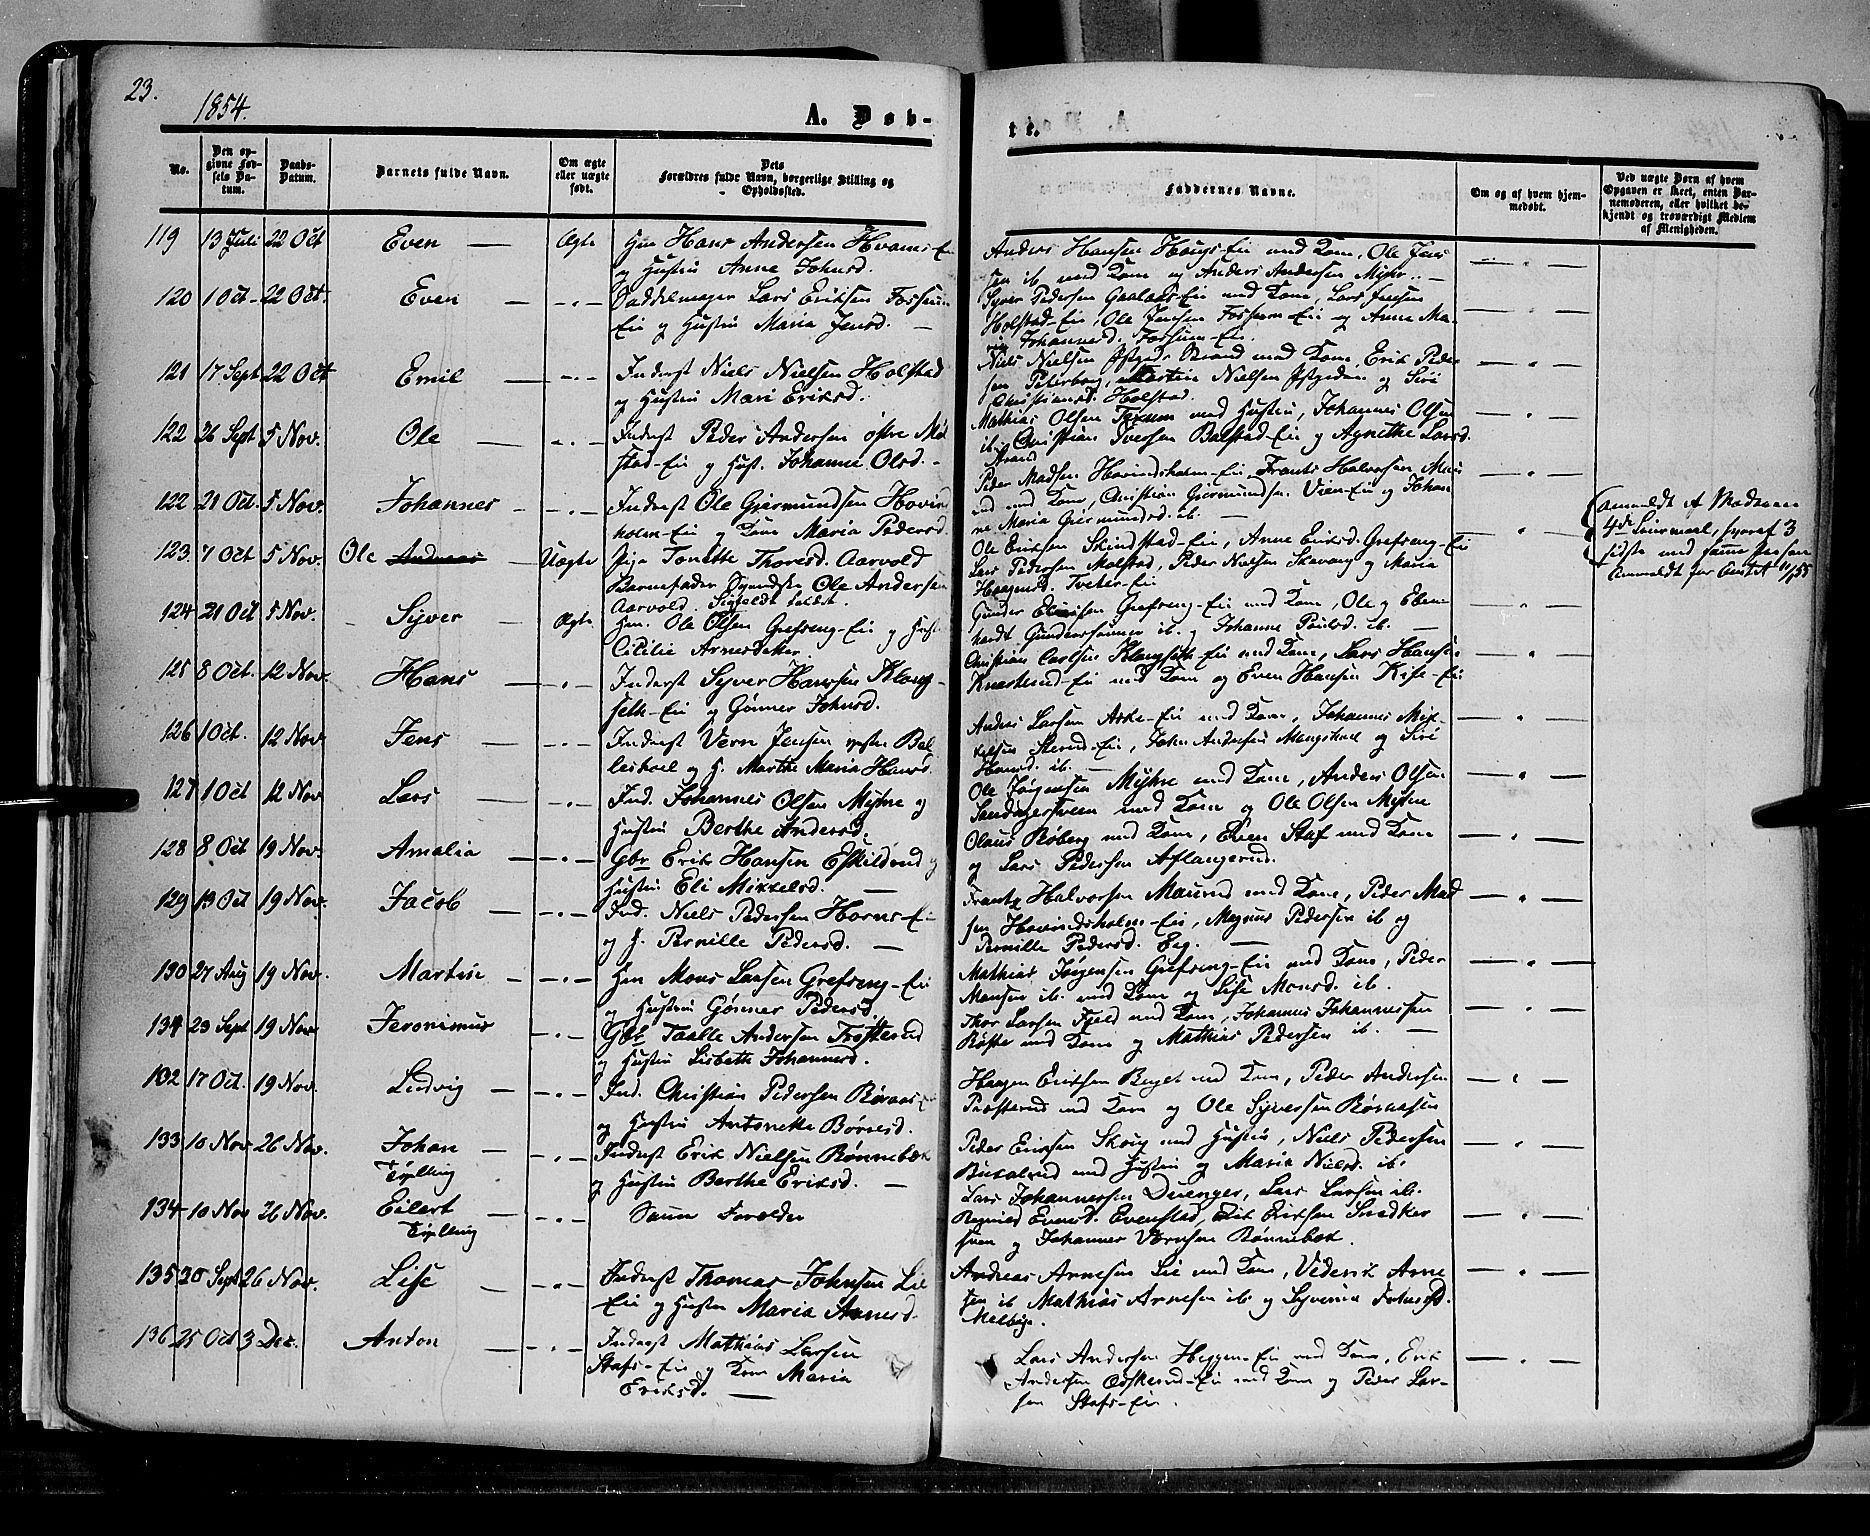 23.
1854.
A. Døb-
te.
No.
Den op-
givne Fød-
sels Da-
tum.
Daabs-
Datum.
Barnets fulde Navn.
Om ægte
eller uægte
født.
Dets
Forældres fulde Navn, borgerlige Stilling og
Opholdssted.
Faddernes Navne.
Om og af hvem hjem-
medøbt.
Ved uægte Børn af hvem
Opgaven er skeet, enten Bar-
nemoderen, eller hvilket be-
kjendt og troværdigt Medlem
af Menigheden.
119 13 Juli 22 Oct Even — Ægte Hans Andersen Hvams-Ei
og Hustru Anne Johnsd.
Anders Hansen Haugs-Ei med Kone, Ole Jens
sen ib med Kone og Anders Andersen Myhr.
120 1 Oct 22 Oct. Even — Saddelmager Lars Eriksen Fossum-
Ei og Hustru Maria Jensd. —
Syver Pedersen Gaalaas-Ei med Kone, Lars Jensen
Holstad-Ei, Ole Jensen Fossum-Ei og Anne Ma-
ria Johannesd. Fossum-Ei.
121 17 Sept 22 Oct Emil — Inderst Niels Nielsen Holstad
og Hustru Mari Eriksd.
Niels Nielsen Brand med Kone, Erik Peder
sen Peterborg, Martin Nielsen og Siri
Christiansd. Holstad.
122 26 Sept 5 Nov. Ole — Inderst Peder Andersen østre Mo
stad-Ei og Hust. Johanne Olsd.
Mathias Olsen med Hustru, Johannes Olsen
ib. Christian Iversen Balstad-Ei og Agnethe Larsd.
Strand
122 21 Oct. 5 Nov. Johannes — Inderst Ole Gjermundsen Hovind
holm-Ei og Kone Maria Pedersd
Peder Madsen Hovindsholm-Ei, Frants Halvorsen Mau
rud med Kone, Christian Gjermundsen Vien-Ei og Johan
ne Maria Gjermundsd. ib. —
123. 7 Oct 5 Nov. Ole Andreas — Uægte Pige Tonette Thoresd. Aarvold
Barnefader Ole Andersen
Aarvold.
Ole Eriksen Skindstad-Ei, Anne Eriksd. Grefseng-Ei
Lars Pedersen Molstad, Peder Nielsen Skavang og Maria
Haagensd. Tveter-Ei
Anmeldt af
4de Leiermaal,
sidste med
Anmeldt for
124 21 Oct 5 Nov. Syver — Ægte Ole Olsen Grefseng-Ei og Hust.
Cicilie Arnesdatter.
Gunder Grefseng-Ei med Kone, Ole og Eben
hardt Gundersønner ib. og Johanne Paulsd. ib. —
125 8 Oct. 12 Nov. Hans — Inderst Syver Hansen Klong-
seth-Ei og Gønner Johnsd.
Christian Carlsen Klongseth-Ei med Kone, Lars Hansen
Knatterud-Ei med Kone og Even Hansen Kise-Ei
126 1 Oct. 12 Nov Jens — Inderst Vern Jensen vestre Bal
leshoel og H. Marthe Maria Hansd.
Andres Larsen Aske-Ei med Kone, Johannes Mik
kelsen Sterud-Ei, John Andersen Mangshoel og Siri
Hansd. ib. —
127 1 Oct 12 Nov Lars — Ind. Johannes Olsen Myhre og
Hustru Berthe Andersd.
Ole Jørgensen Myhre med Kone, Anders Olsen
Sandagersveen med Kone og Ole Olsen Myhre
128 8 Oct 19 Nov. Amalia — Gbr Erik Hansen Eskildrud og
Hustru Eli Mikkelsd. —
Olaus Røberg med Kone, Even Staf med Kone
og Lars Pedersen Aflangerud.
129 13 Oct 19 Nov. Jacob — Ind. Niels Pedersen Horns-Ei
og H. Pernille Pedersd. —
Frantz Halvorsen Maurud med Kone, Peder Mad
sen Hovindsholm-Ei, Magnus Pedersen ib og
Pernille Pedersd. Eeg. —
130 27 Aug 19 Nov. Martin — Mons Larsen Grefseng-Ei
og Hustru Gønner Pedersd.
Mathias Jørgensen Grefseng-Ei med Kone, Peder
Monsen ib. med Kone og Lise Monsd. ib.
131 23 Sept 19 Nov. Jeronimus — Gbr Taalle Andersen Trosterud
og Hustru Lisbeth Johannesd.
Thor Larsen Fjeld med Kone, Johannes Johannessen
Røste med Kone og Mathias Pedersen ib. —
132 17 Oct. 19 Nov. Ludvig — Ind. Christian Pedersen
og Hustru Antonette Børresd.
Haagen Eriksen Berget med Kone, Peder Andersen
Trosterud med Kone og Ole Syversen
133 10 Nov 26 Nov. Johan —
Tvilling
Inderst Erik Nielsen Rønnebek
og Hustru Berthe Eriksd. —
Peder Ericksen Skoug med Hustru, Niels Pedersen
med Hustru og Maria Nielsd. ib.
134 10 Nov 26 Nov. Eilert —
Tvilling
Samme Forældre
Lars Johannessen Duenger, Lars Larsen ib.
Evensd. Evenstad, Erik Eriksen Snedker
sveen og Johannes Rønnebek.
135 30 Sept 26 Nov. Lise — Inderst Thomas Johnsen Lie
Ei og Hustru Maria Arnesd.
Andreas Arnesen Lie med Kone, Arne
sen ib Mathias Arnesen ib. og Syverine Johnsd.
Melbye.
136 25 Oct 3 Dec. Anton — Inderst Mathias Larsen
Stafs-Ei og Kone Maria
Eriksd. —
Lars Andersen Heggen-Ei med Kone, Erik
Andersen med Kone og Peder Lar-
sen Stafs-Ei.